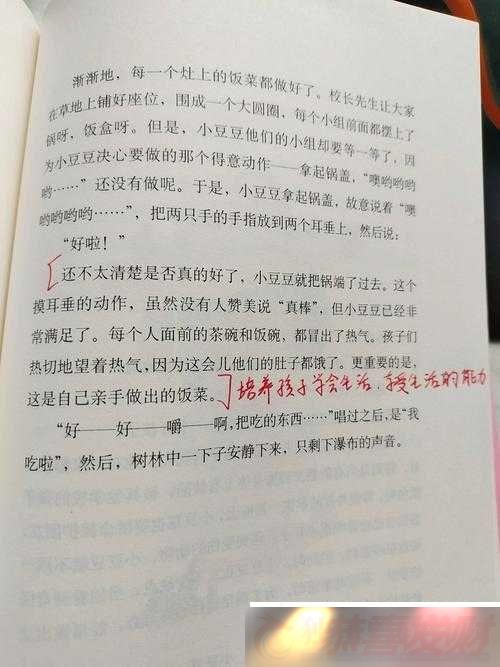 渐渐地，每一个灶上的饭菜都做好了。校长先生让大家
在草地上铺好座位，围成一个大圆圈，每个小组前面都摆上了
锅呀，饭盒呀。但是，小豆豆他们的小组却要等一等了，因
为小豆豆决心要做的那个得意动作——拿起锅盖，“噢哟哟哟
哟……”还没有做呢。于是，小豆豆拿起锅盖，故意说着“噢
哟哟哟哟……”，把两只手的手指放到两个耳垂上，然后说：
“好啦！”
还不太清楚是否真的好了，小豆豆就把锅端了过去。这个
摸耳垂的动作，虽然没有人赞美说“真棒”，但小豆豆已经非
常满足了。每个人面前的茶碗和饭碗，都冒出了热气。孩子们
热切地望着热气，因为这会儿他们的肚子都饿了。更重要的是，
这是自己亲手做出的饭菜。培养孩子学会生活，享受生活的能力
“好——好——嚼——啊，把吃的东西……”唱过之后，是“我
吃啦”，然后，树林中一下子安静下来，只剩下瀑布的声音。